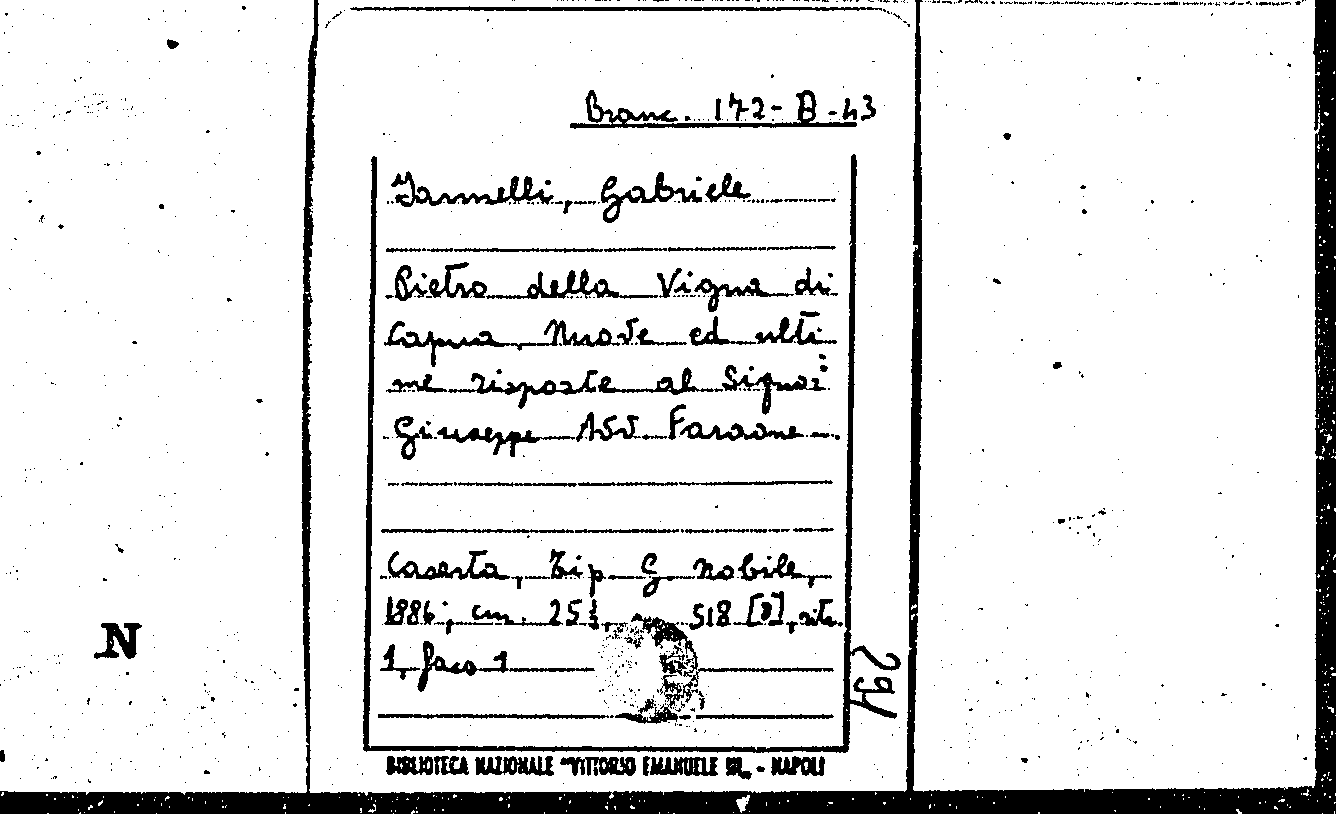 Branc. 172-B-43
Iannelli, Gabriele
Pietro della Vigna di
Capua. Nuove ed ulti
me risposte al Signor
Giuseppe Avv. Faraone.
Caserta, Tip. G. Nobile,
1886, cm. 25½, 518 [2], rit.
1, facs 1
N
BIBLIOTECA NAZIONALE "VITTORIO EMANUELE III" - NAPOLI